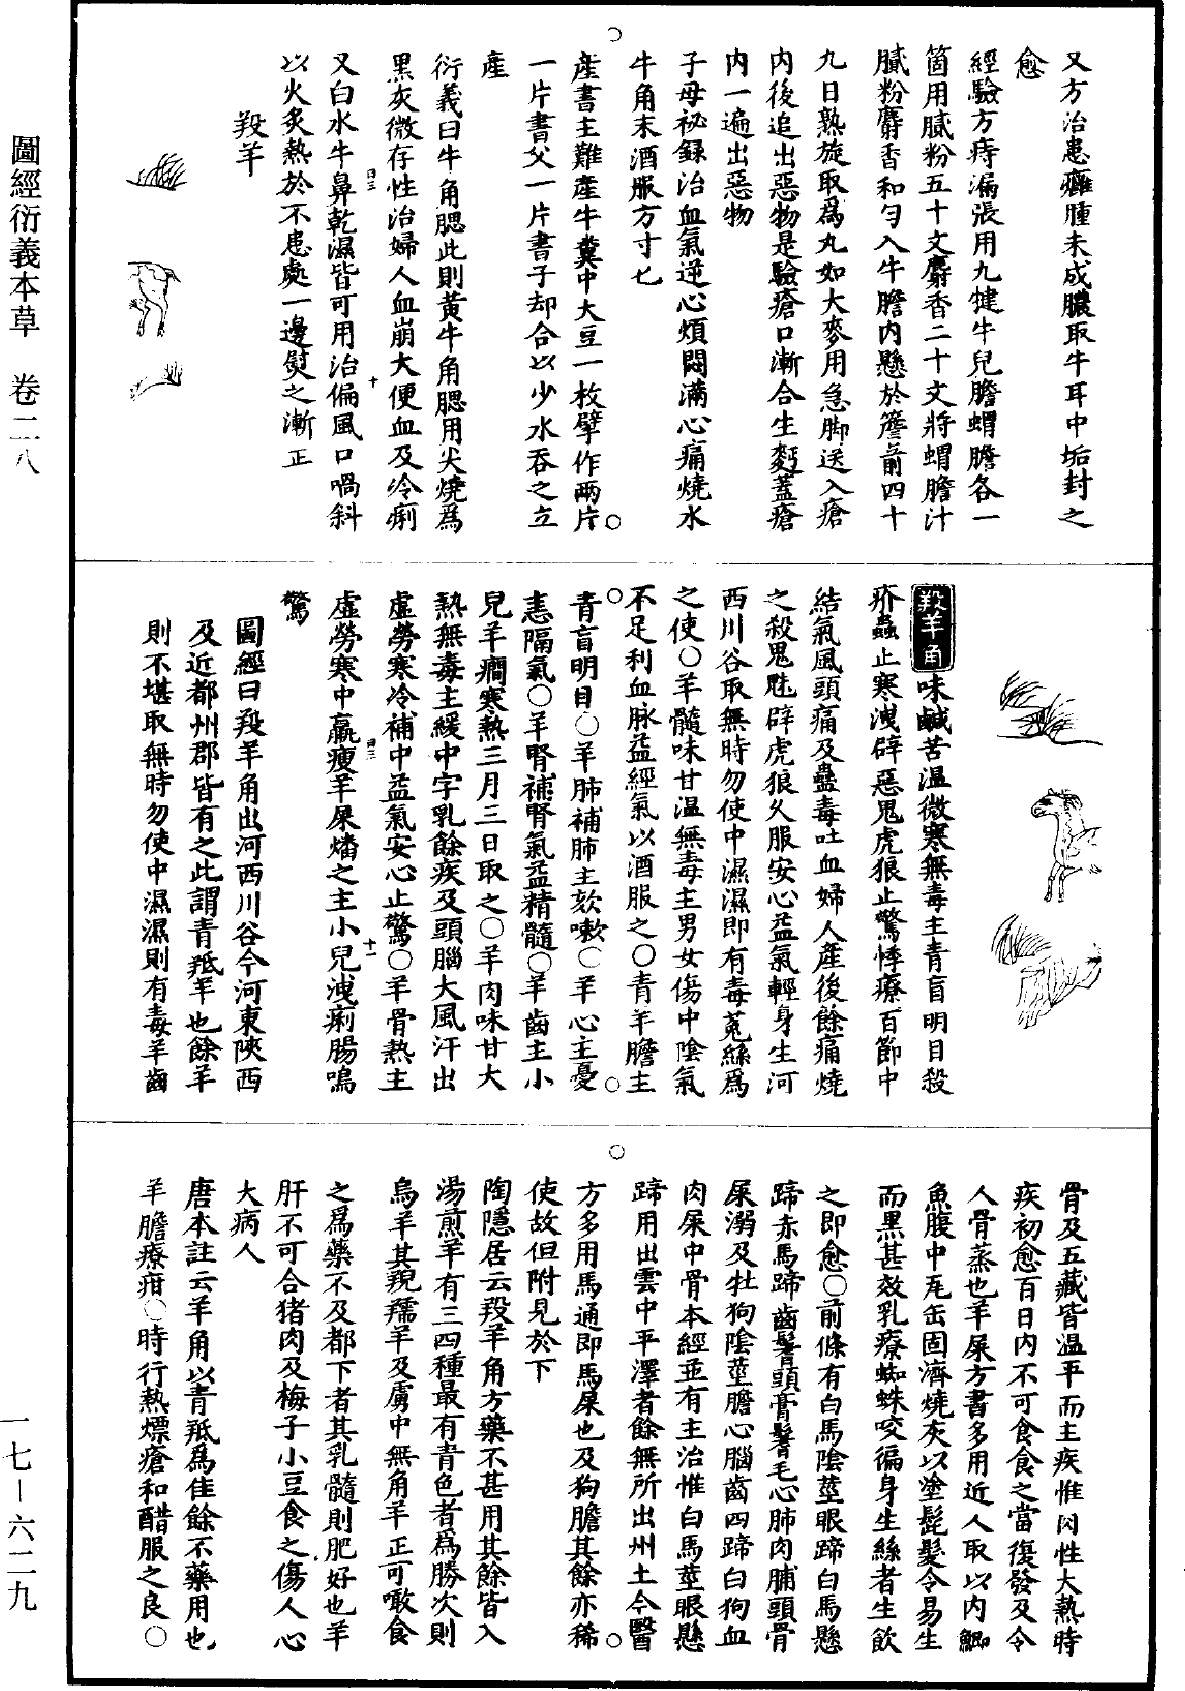 圖經衍義本草　卷二八
又方治患癰腫未成膿取牛耳中垢封之
愈
經驗方痔漏張用九犍牛兒膽蝟膽各一
箇用膩粉五十文麝香二十文將蝟膽汁
膩粉麝香和勻入牛膽內懸於簷前四十
九日熟旋取爲丸如大麥用急脚送入瘡
內後追出惡物是驗瘡口漸合生麪蓋瘡
內一遍出惡物
子母祕錄治血氣逆心煩悶滿心痛燒水
牛角末酒服方寸匕
產書主難產牛糞中大豆一枚擘作兩片
一片書父一片書子却合以少水吞之立
產
衍義曰牛角腮此則黃牛角腮用尖燒爲
黑灰微存性治婦人血崩大便血及冷痢
又白水牛鼻乾濕皆可用治偏風口喎斜
以火炙熱於不患處一邊熨之漸正
羖羊
羖羊角味鹹苦溫微寒無毒主青盲明目殺
疥蟲止寒洩辟惡鬼虎狼止驚悸療百節中
結氣風頭痛及蠱毒吐血婦人產後餘痛燒
之殺鬼魅辟虎狼久服安心益氣輕身生河
西川谷取無時勿使中濕濕即有毒菟絲爲
之使○羊髓味甘溫無毒主男女傷中陰氣
不足利血脉益經氣以酒服之○青羊膽主
青盲明目○羊肺補肺主欬嗽○羊心主憂
恚隔氣○羊腎補腎氣益精髓○羊齒主小
兒羊癎寒熱三月三日取之○羊肉味甘大
熱無毒主緩中字乳餘疾及頭腦大風汗出
虛勞寒冷補中益氣安心止驚○羊骨熱主
虛勞寒中羸瘦羊屎燔之主小兒洩痢腸鳴
驚
圖經曰羖羊角出河西川谷今河東陝西
及近都州郡皆有之此謂青羝羊也餘羊
則不堪取無時勿使中濕濕則有毒羊齒
骨及五藏皆溫平而主疾惟肉性大熱時
疾初愈百日內不可食食之當復發及令
人骨蒸也羊屎方書多用近人取以內鯽
魚腹中瓦缶固濟燒灰以塗髭髮令易生
而黑甚效乳療蜘蛛咬徧身生絲者生飲
之即愈○前條有白馬陰莖眼蹄白馬懸
蹄赤馬蹄齒鬐頭膏鬐毛心肺肉脯頭骨
屎溺及牡狗陰莖膽心腦齒四蹄白狗血
肉屎中骨本經並有主治惟白馬莖眼懸
蹄用出雲中平澤者餘無所出州土今醫
方多用馬通即馬屎也及狗膽其餘亦稀
使故但附見於下
陶隱居云羖羊角方藥不甚用其餘皆入
湯煎羊有三四種最有青色者爲勝次則
烏羊其羖䍲羊及虜中無角羊正可噉食
之爲藥不及都下者其乳髓則肥好也羊
肝不可合猪肉及梅子小豆食之傷人心
大病人
唐本註云羊角以青羝爲佳餘不藥用也
羊膽療疳○時行熱熛瘡和醋服之良○
一七－六二九